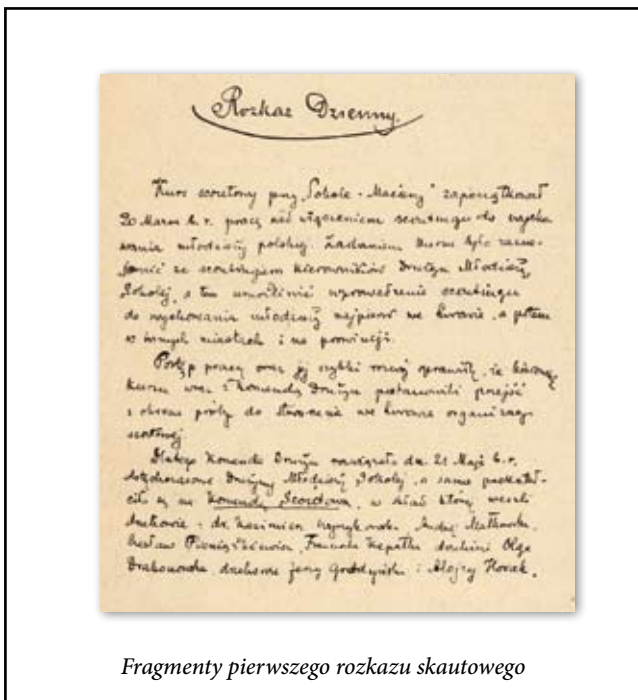 Rozkaz Dzienny.
Kurs scoutowy przy „Sokole-Macierzy” zapoczątkował
20 Marca b. r. pracę nad włączeniem scoutingu do wycho-
wania młodzieży polskiej. Zadaniem kursu było zazna-
jomić ze scoutingiem kierowników Drużyn Młodzieży
Sokolej, a tem umożliwić wprowadzenie scoutingu
do wychowania młodzieży najpierw we Lwowie, a potem
w innych miastach i na prowincji.
Postęp pracy oraz jej szybki rozwój sprawiły, że
kursu wraz z Komendą Drużyn postanowili przejść
z okresu próby do stworzenia we Lwowie organizacyi
scoutowej
Dlatego Komenda Drużyn rozwiązała dn. 21 Maja b. r.
dotychczasowe Drużyny Młodzieży Sokolej, a sama przekształ-
ciła się na Komendę Scoutową, w skład której weszli
druhowie: dr. Kazimierz Wyrzykowski, Andrzej Małkowski,
Czesław Pieniążkiewicz, Franciszek Kapałka druhini Olga
Drahonowska, druhowie Jerzy Grodyński i Alojzy Horak.
Fragmenty pierwszego rozkazu skautowego